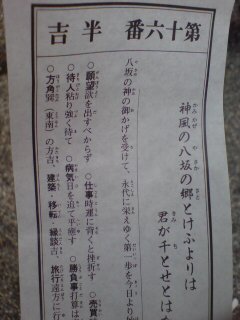 第十六番　半吉
神風の八坂の郷とけふよりは
君が千とせとは
八坂の神の御かげを受けて、永代に栄えゆく第一歩を今日より始
●願望 欲を出すべからず ●仕事 時運に背くと挫折す ●売買
●待人 粘り強く待て ●病気 日を追て平癒す ●勝負事 打算は
●方角 巽（東南）の方吉、建築 移転 縁談吉、旅行 遠方に行